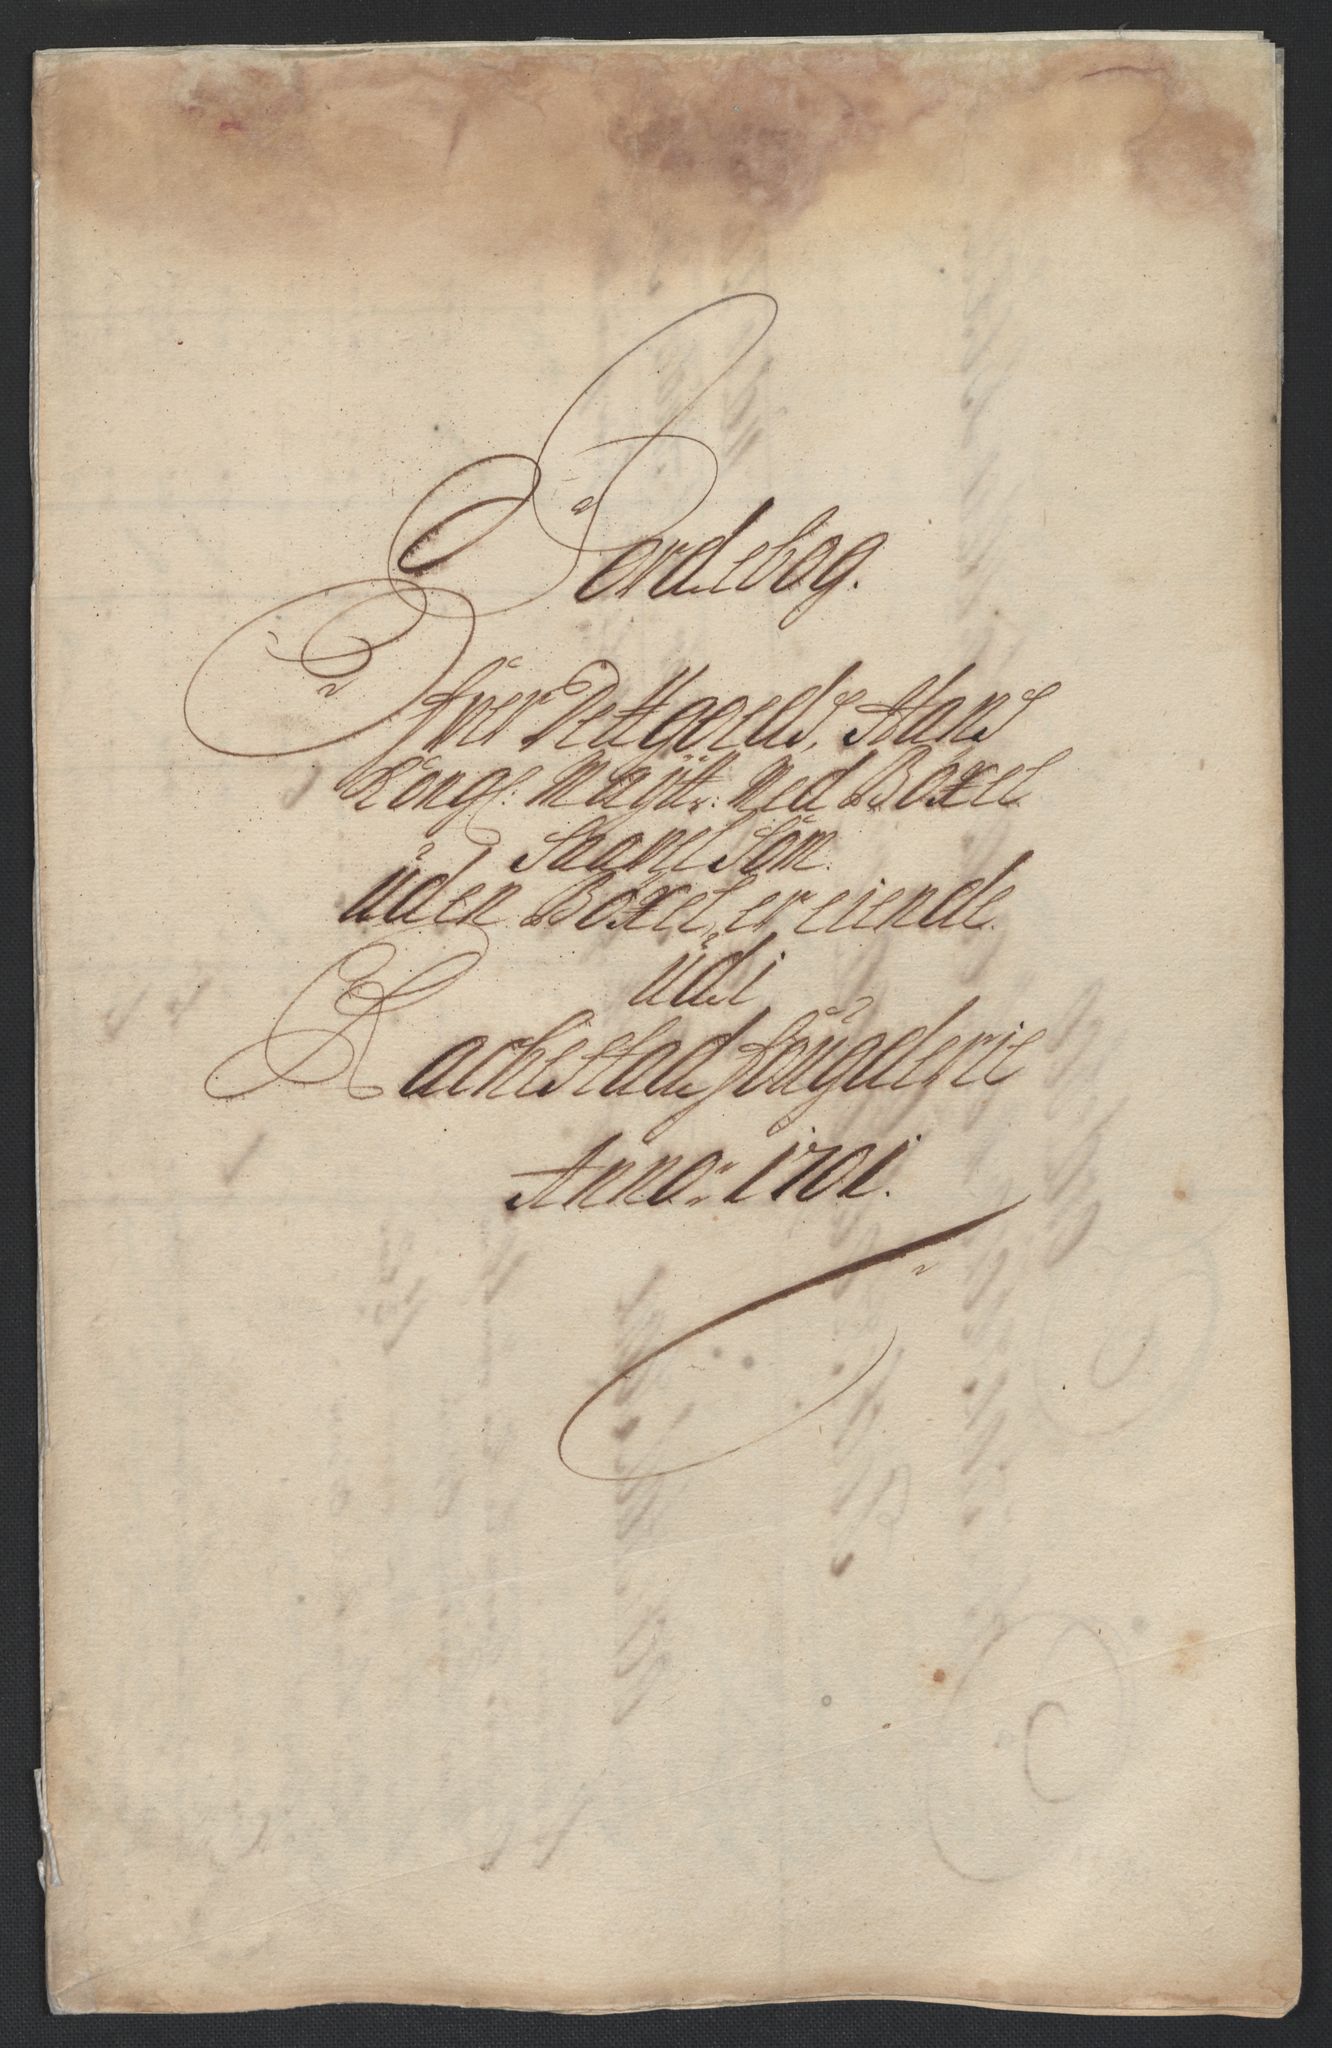 Jordebog.
Ofver Det Goeds, Hans
Kongl: Mayttz: Med Boxel
Saavel Som
Uden Boxel, er eiende
Udi
Backestad fougderie
Anno: 1701.